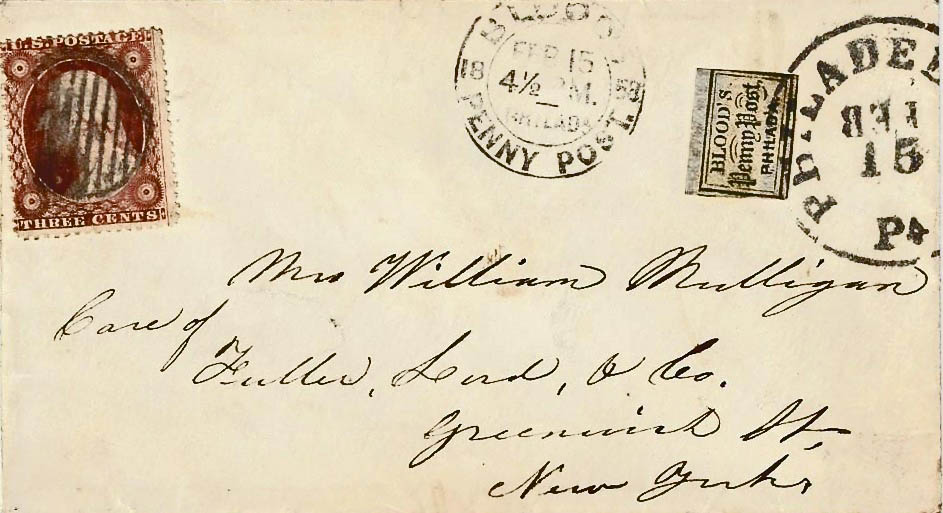 U.S. POSTAGE
THREE CENTS
BLOOD'S
FEB 15
4½ P.M.
PHILADA
18 58
PENNY POST.
BLOOD'S
Penny Post.
PHILAD'A.
PHILADEL
FEB
15
Pa
Mrs William Mulligan
Care of
Fuller, Lord, & Co.
Greenwich St,
New York,